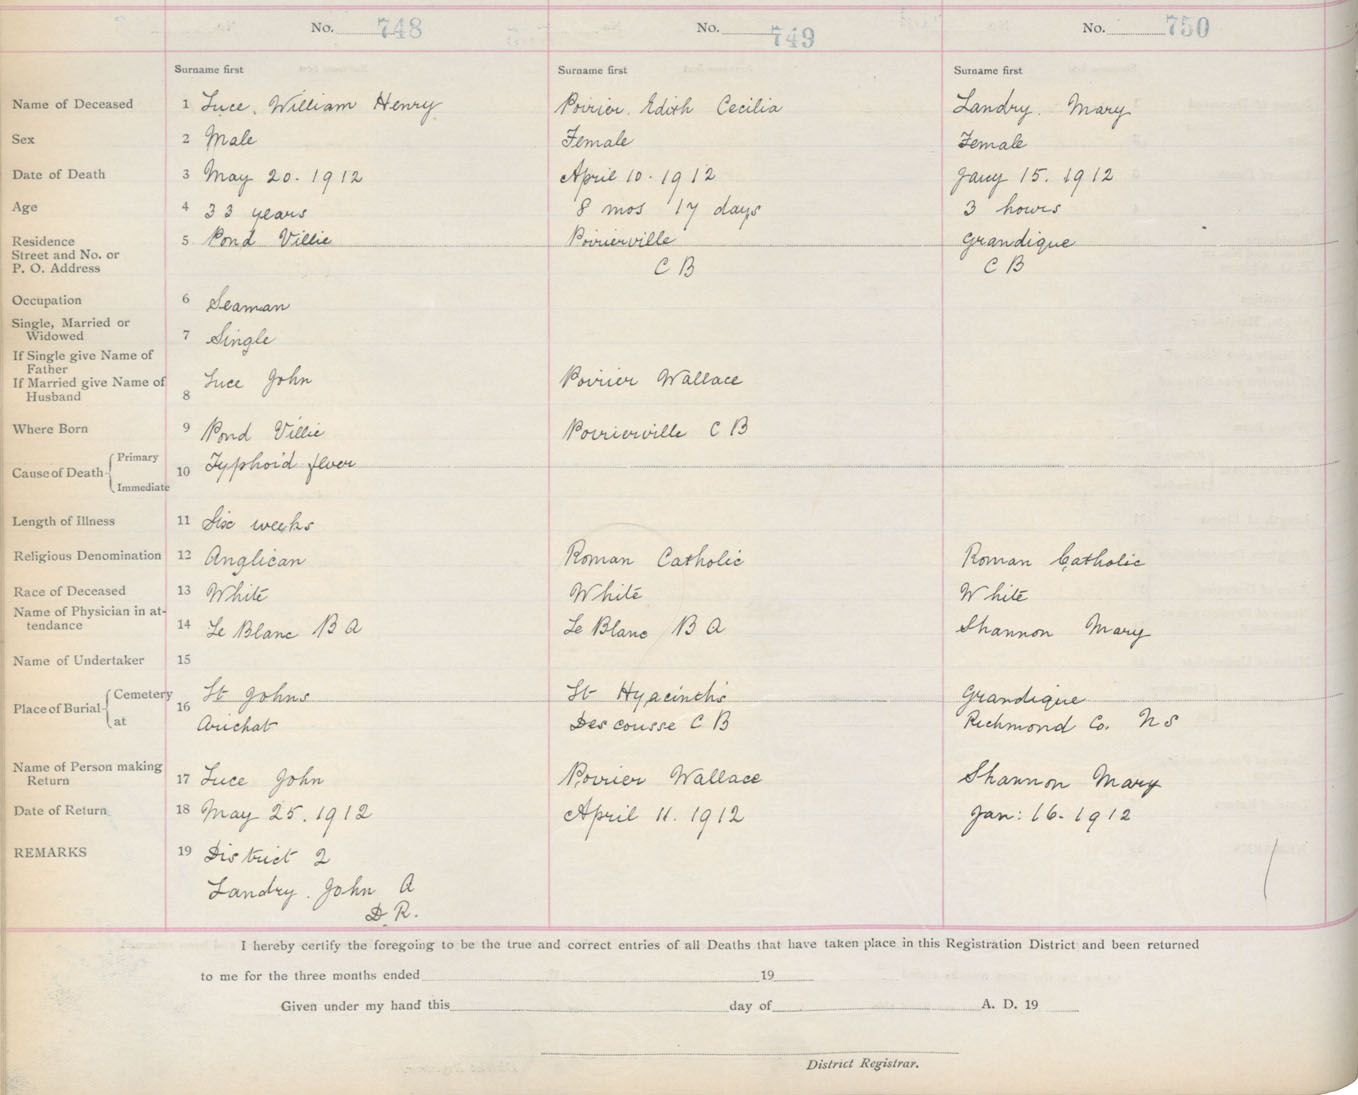 No. 748 No. 749 No. 750
Surname first Surname first Surname first
Name of Deceased 1 Luce, William Henry Poirier, Edith Cecilia Landry. Mary
Sex 2 Male Female Female
Date of Death 3 May 20. 1912 April 10. 1912 Jany 15. 1912
Age 4 33 years 8 mos 17 days 3 hours
Residence 5 Pond Villie Poirierville Grandique
Street and No. or
P. O. Address C B C B
Occupation 6 Seaman
Single, Married or
Widowed 7 Single
If Single give Name of
Father
If Married give Name of Luce John Poirier Wallace
Husband 8
Where Born 9 Pond Villie Poirierville C B
Cause of Death Primary 10 Typhoid fever
Immediate
Length of Illness 11 Six weeks
Religious Denomination 12 Anglican Roman Catholic Roman Catholic
Race of Deceased 13 White White White
Name of Physician in at-
tendance 14 Le Blanc B A Le Blanc B A Shannon Mary
Name of Undertaker 15
Place of Burial Cemetery 16 St Johns St Hyacinth's Grandique
at Arichat Descousse C B Richmond Co. N S
Name of Person making
Return 17 Luce John Poirier Wallace Shannon Mary
Date of Return 18 May 25. 1912 April 11. 1912 Jan: 16. 1912
REMARKS 19 District 2
Landry. John A
D. R.
I hereby certify the foregoing to be the true and correct entries of all Deaths that have taken place in this Registration District and been returned
to me for the three months ended 19
Given under my hand this day of A. D. 19
District Registrar.